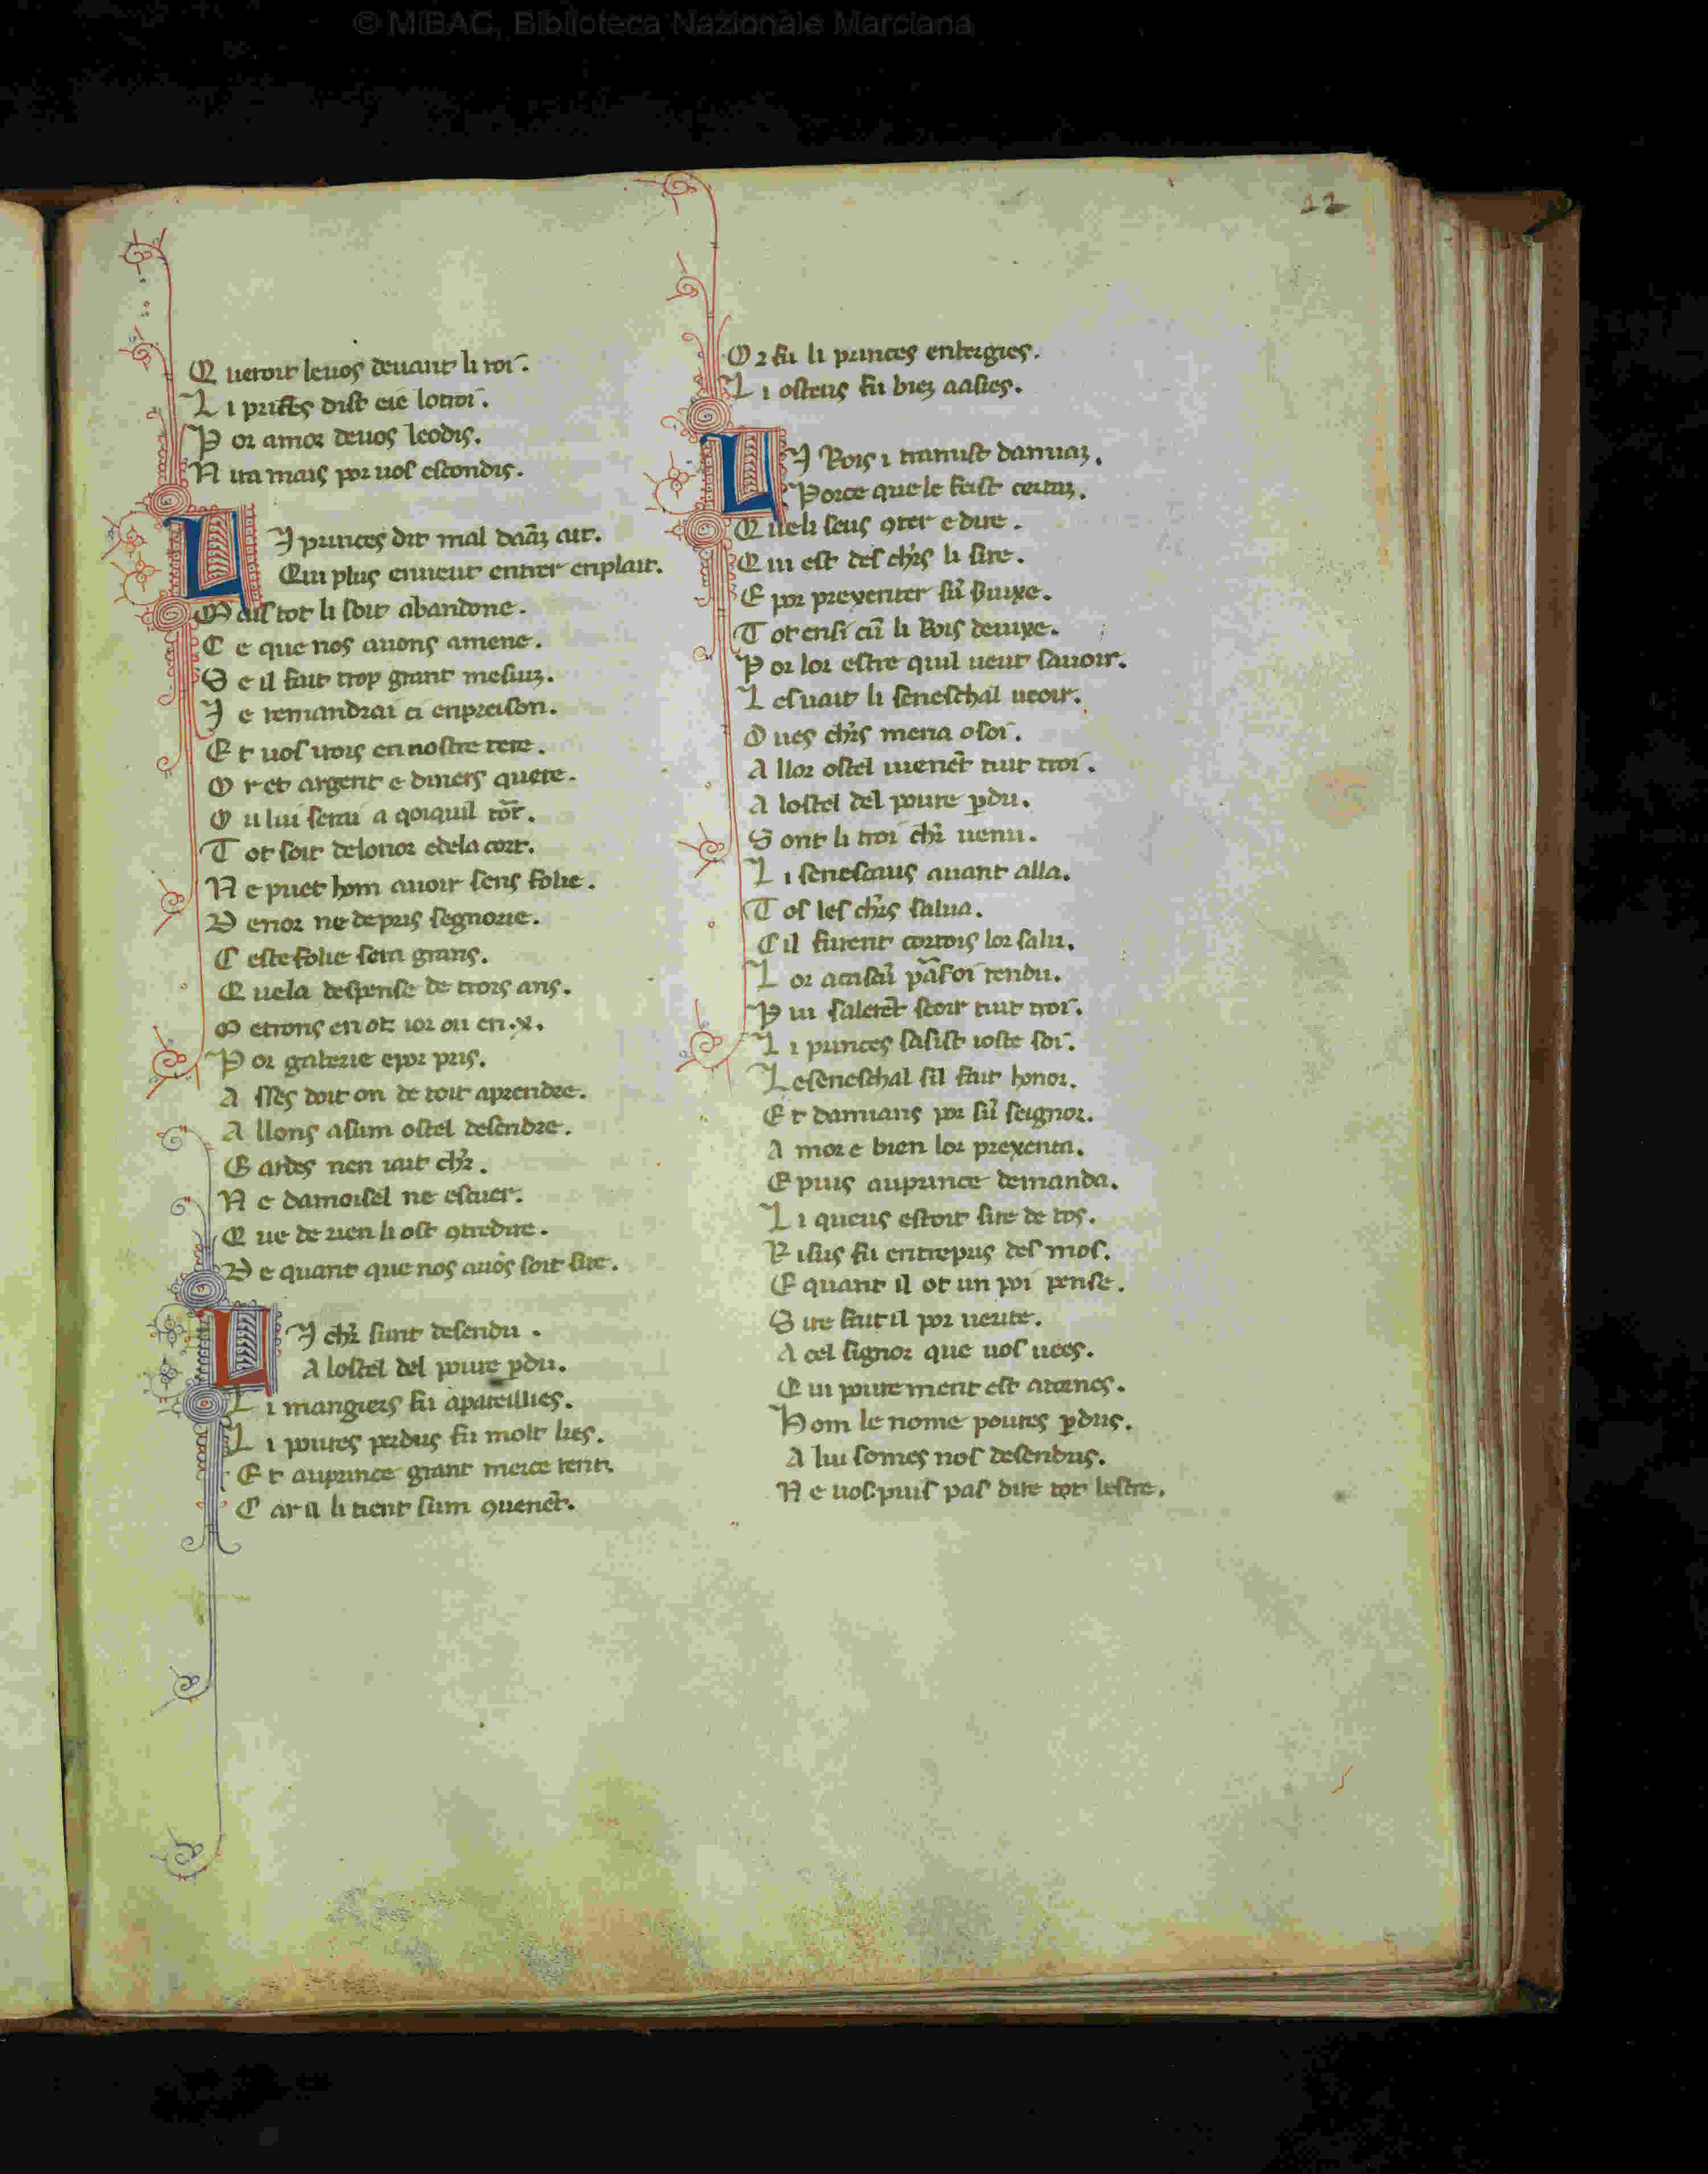 © MiBAC, Biblioteca Nazionale Marciana
12
Q ueroit leuos deuant li roi.
L i prīces dist eie lotroi.
P or amor deuos leodis.
N ira mais por uos escondis.
L I princes dit mal daāz ait.
Qui plus enueut entrer enplait.
M ais tot li soit abandone.
C e que nos auons amene.
S e il fait trop grant mesiuz.
J e remandrai ci enpreison.
E t uos irois en nostre tere.
O r et argent e diners quere.
O u lui serui a qoiquil tōt.
T ot soit delonor edela cort.
N e puet hom auoir sens folie.
D enor ne depris segnorie.
C este folie sera grans.
Q uela despense de trois ans.
M etrons en ot ior ou en .x.
P or galerie epor pris.
A sses doit on de roit aprendre.
A llons asum ostel desendre.
G ardes nen iait chr̄.
N e damoisel ne escuer.
Q ue de rien li ost 9tredire.
D e quant que nos auōs soit sire.
L I chr̄ sunt desendu.
A lostel del poure ꝑdu.
L i mangiers fu apareillies.
L i poures perdus fu molt lies.
E t auprince grant merce rent.
C ar il li tient sum 9uenēt.
O r fu li princes enbergies.
L i osteus fu biez aasies.
L I Rois i tramist damiaz.
Porce que le feist certaz.
Q ueli seus 9ter e dire.
Q ui est des chr̄s li sire.
E por prexenter sū seruixe.
T ot ensi cū li Rois deuixe.
P or lor estre quil ueut sauoir.
L es uait li seneschal ueoir.
D ues chr̄s mena osoi.
A llor ostel uienēt tuit troi.
A lostel del poure ꝑdu.
S ont li troi chr̄ uenu.
L i senescaus auant alla.
T os les chr̄s salua.
C il furent cortois lor salu.
P ui salerēt seoir tuit troi.
L i princes sasist ioste soi.
L eseneschal sil fait honor.
E t damians por sū seignor.
A mor e bien lor prexenta.
E puis auprince demanda.
L i queus estoit sire de tos.
R isus fu entrepris des mos.
E quant il ot un poi pense.
S ire fait il por uerite.
A cel signor que uos uees.
Q ui pourement est atornes.
H om le nome poures ꝑdus.
A lui somes nos desendus.
N e uos puis pas dire tot lestre.